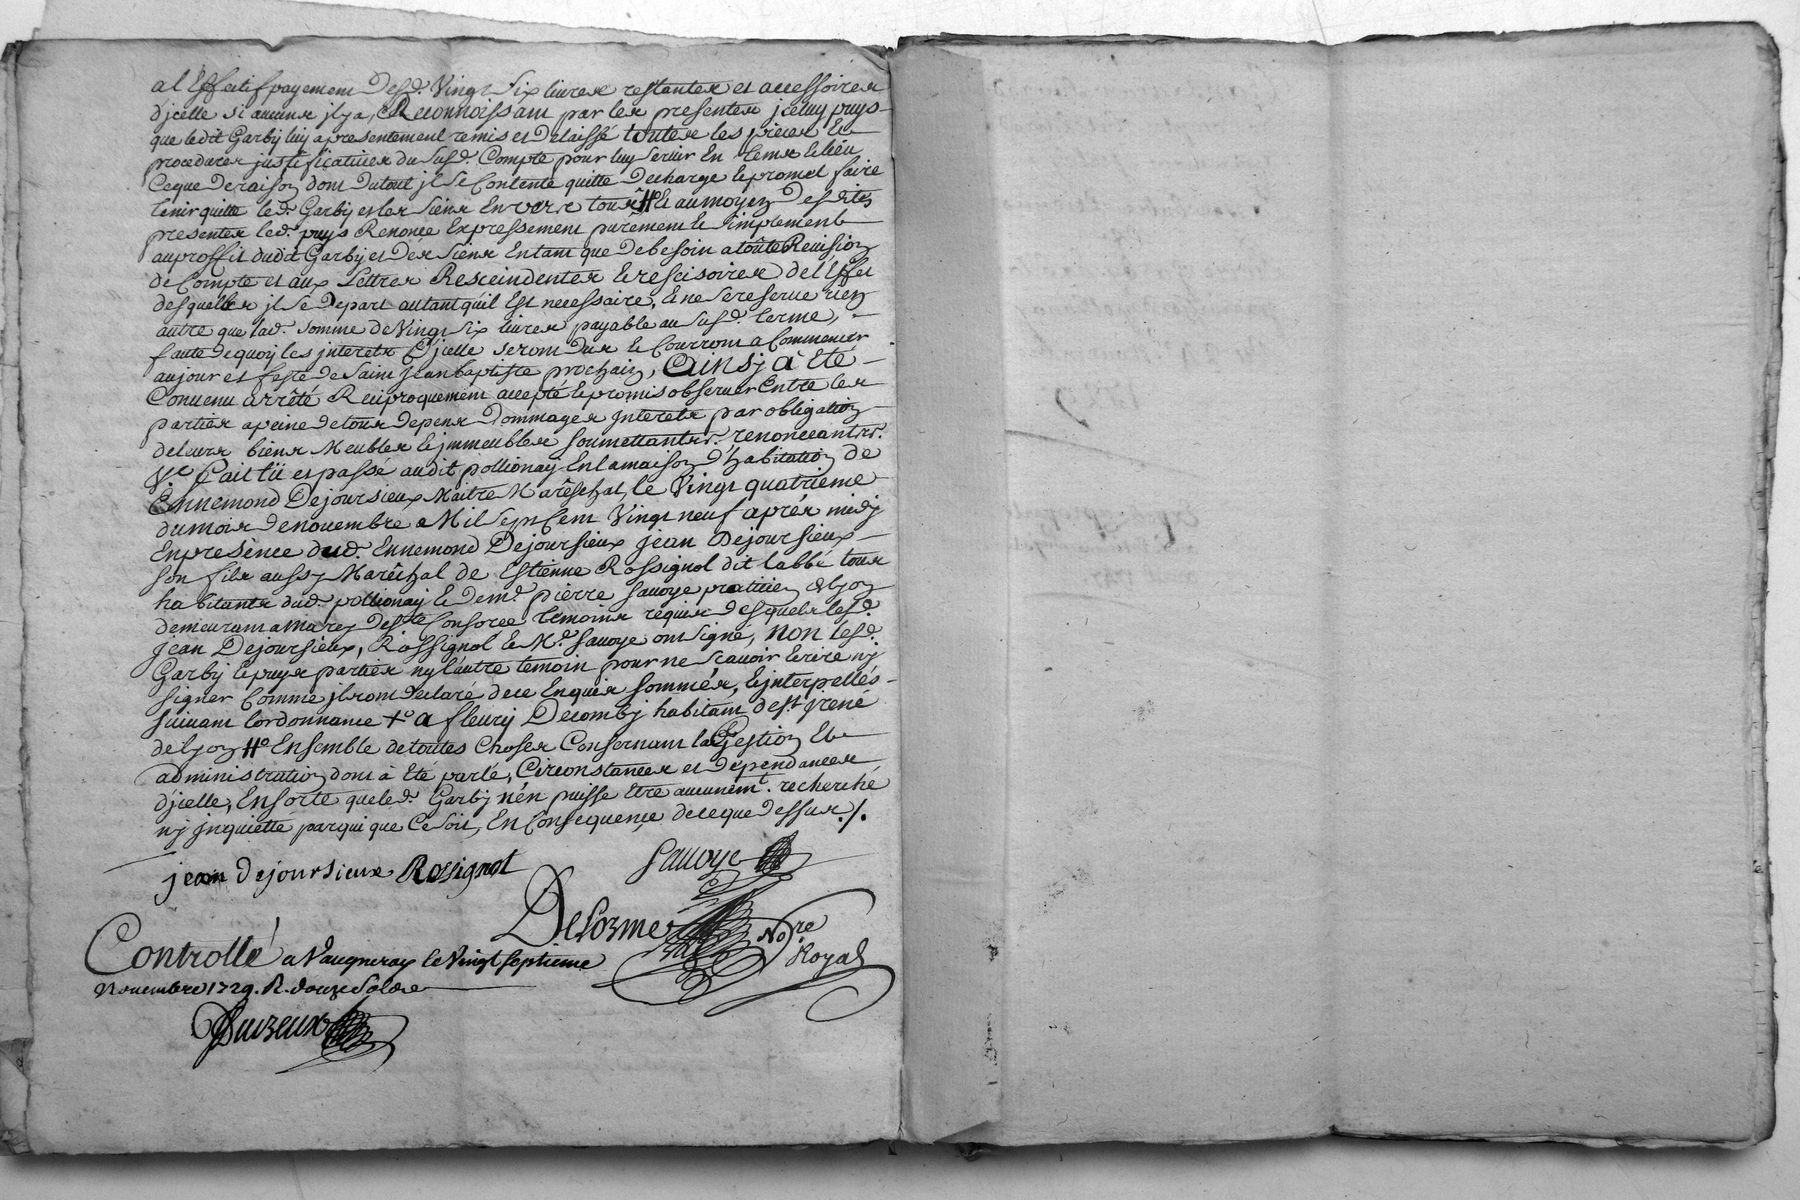 a l'Effectif payement desd. Vingt six livres restantes et accessoires
d'jcelle si aucuns jl y a, Reconnoissant par les presentes jceluy puys
que ledit Garby luy a presentement remis et delaissé toutes les pieces Et
procedures justificatives du susd. Compte pour luy servir En tems et lieu
Ceque de raison dont du tout jl se Contente quitte decharge et promet faire
tenir quitte led. Garby et les siens Envers tous # Et au moyen desdites
presentes led. puys Renonce Expressement purement Et simplement
au proffit dudit Garby et des siens Entant que de besoin a toute Revision
de Compte et aux Lettres Rescindentes et rescisoires de l'Effet
desquelles jl se depart autant quil Est necessaire, et ne se reserve rien
autre que lad. somme de Vingt six livres payable au susd. terme,
faute de quoy les jnterets d'jcelle seront dus et Courront a Commencer
au jour et feste de Saint Jean baptiste prochain, Ainsj à été
Convenu arrêté Reciproquement accepté et promis observer Entre les
parties a peine de tous depens dommages jnterets par obligation
de leurs biens Meubles et jmmeubles soumettantes. renonceantes.
Vc. Fait lü et passé audit pollionay En la maison d'habitation de
Ennemond Dejoursieux Maitre Maréschal, le Vingt quatrieme
du mois de novembre Mil Sept Cent Vingt neuf aprés midj
En presence dud. Ennemond Dejoursieux jean Dejoursieux
son fils aussy Maréchal de Estienne Rossignol dit labbé tous
habitants dud. pollionay et de md. pierre Savoye praticien de lyon
demeurant a Marcy temoins requis desquels lesd.
Jean Dejoursieux, Rossignol et Md. Savoye ont signé, non lesd.
Garby et puys parties ny l'autre temoin pour ne scavoir Ecrire nj
signer Comme jls ont declaré de ce Enquis sommés, et jnterpellés
suivant l'ordonnance +c a fleury Decombj habitant de st jrené
de lyon #c Ensemble de toutes Choses Consernant la Gestion Et
administration dont à été parlé, Circonstances et dependances
d'jcelle, En sorte que led. Garbj nén puisse être aucunemt. recherché
nj jnquietté par qui que Ce soit, En Consequence de ce que dessus ./.
jean dejoursieux Rosignol Savoye
DeLorme No.re Royal
Controllé a Vaugneray le Vingt septieme
Novembre 1729. R. douze Solds